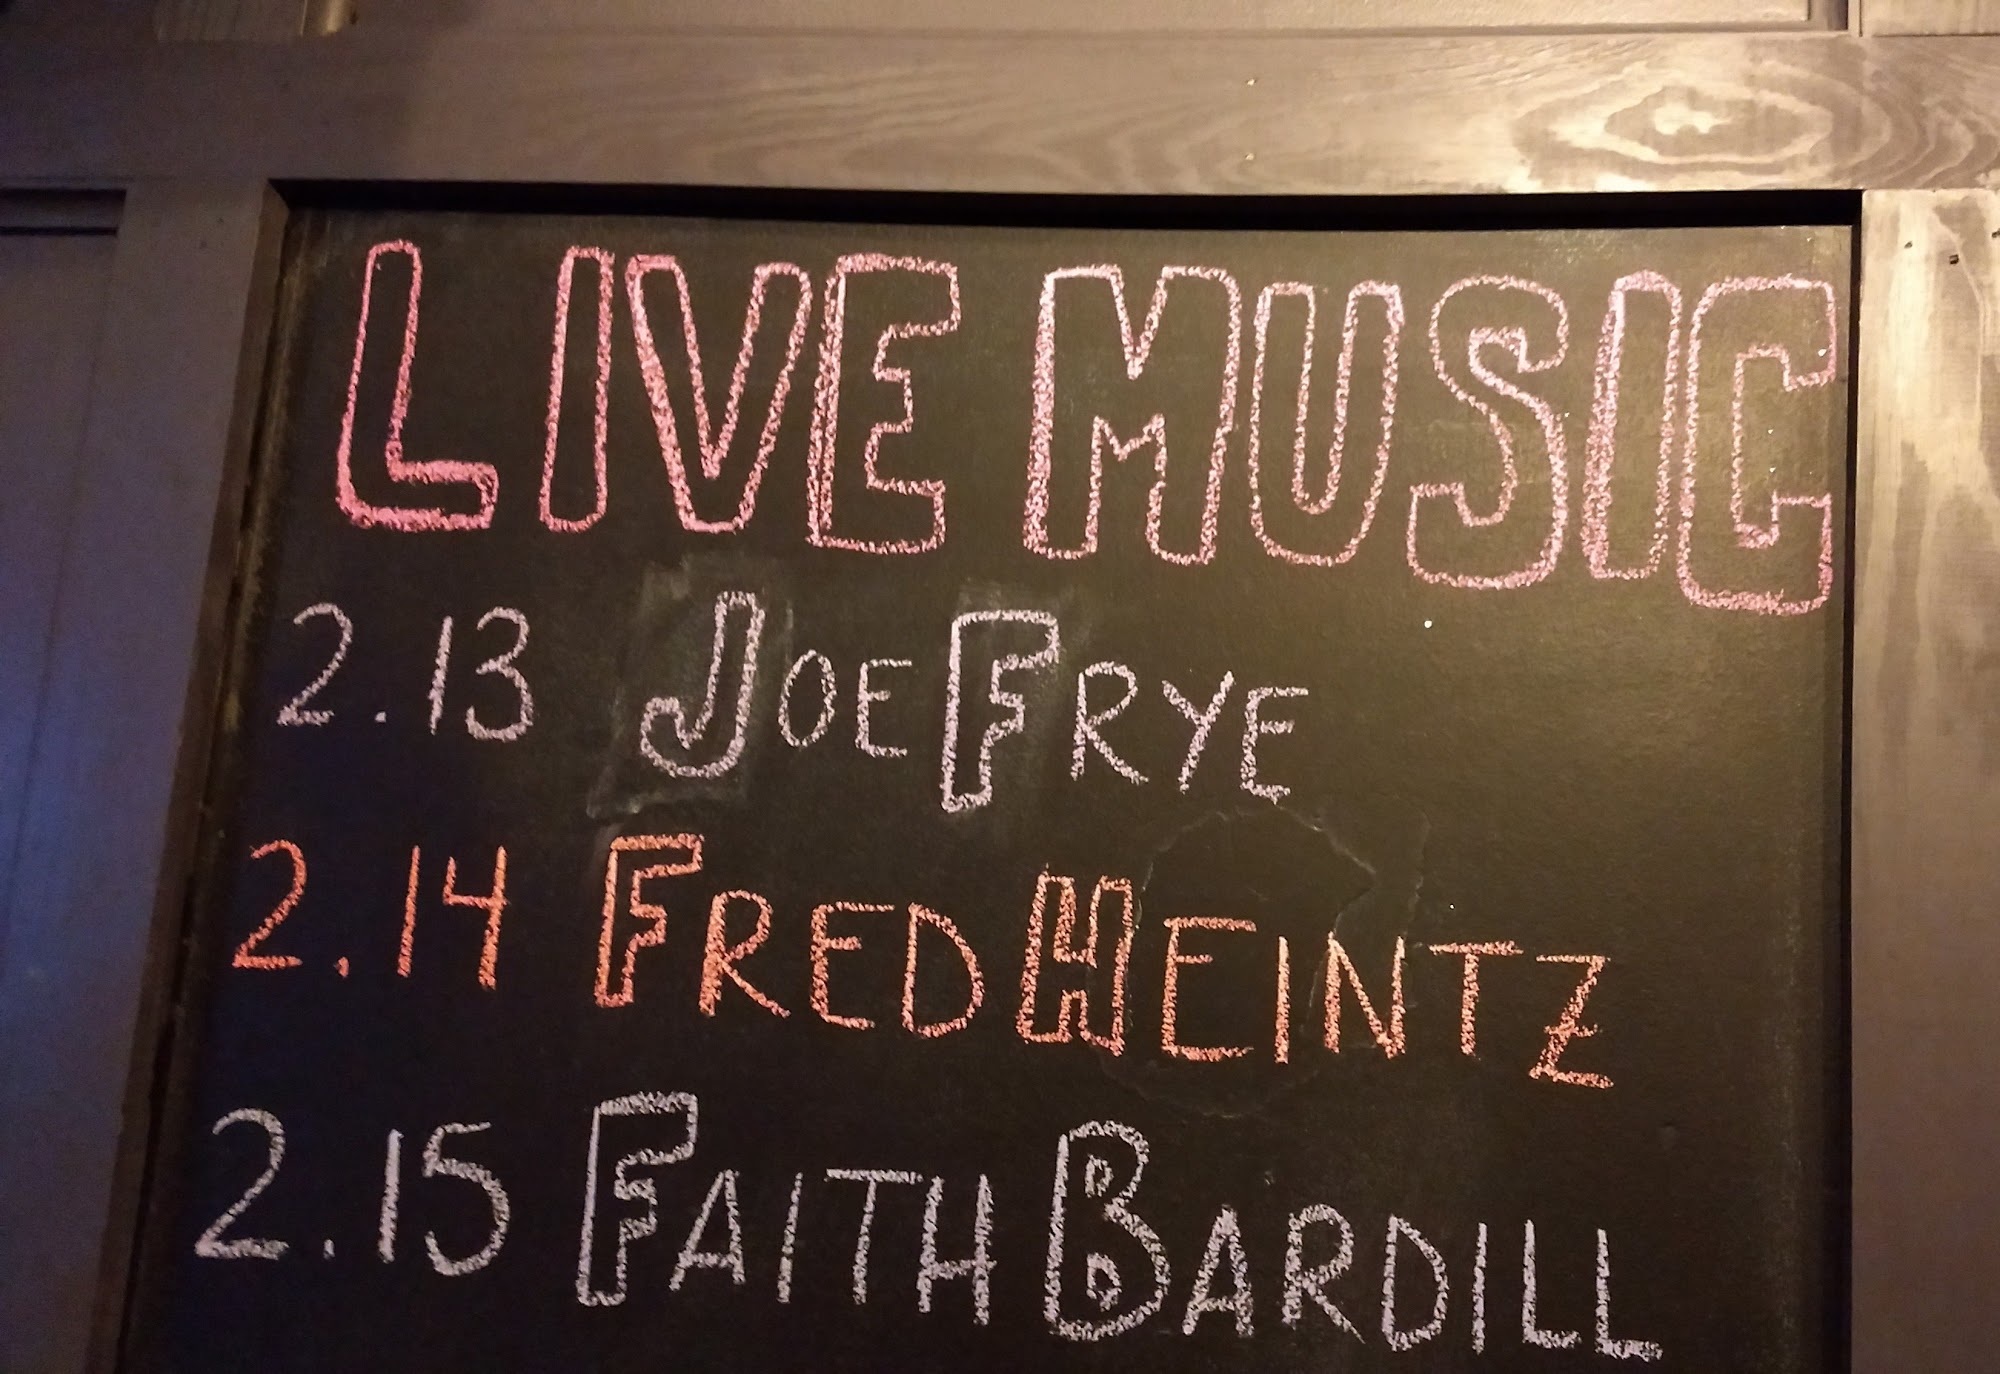 LIVE MUSIC
2.13 JOE FRYE
2.14 FRED HEINTZ
2.15 FAITH BARDILL